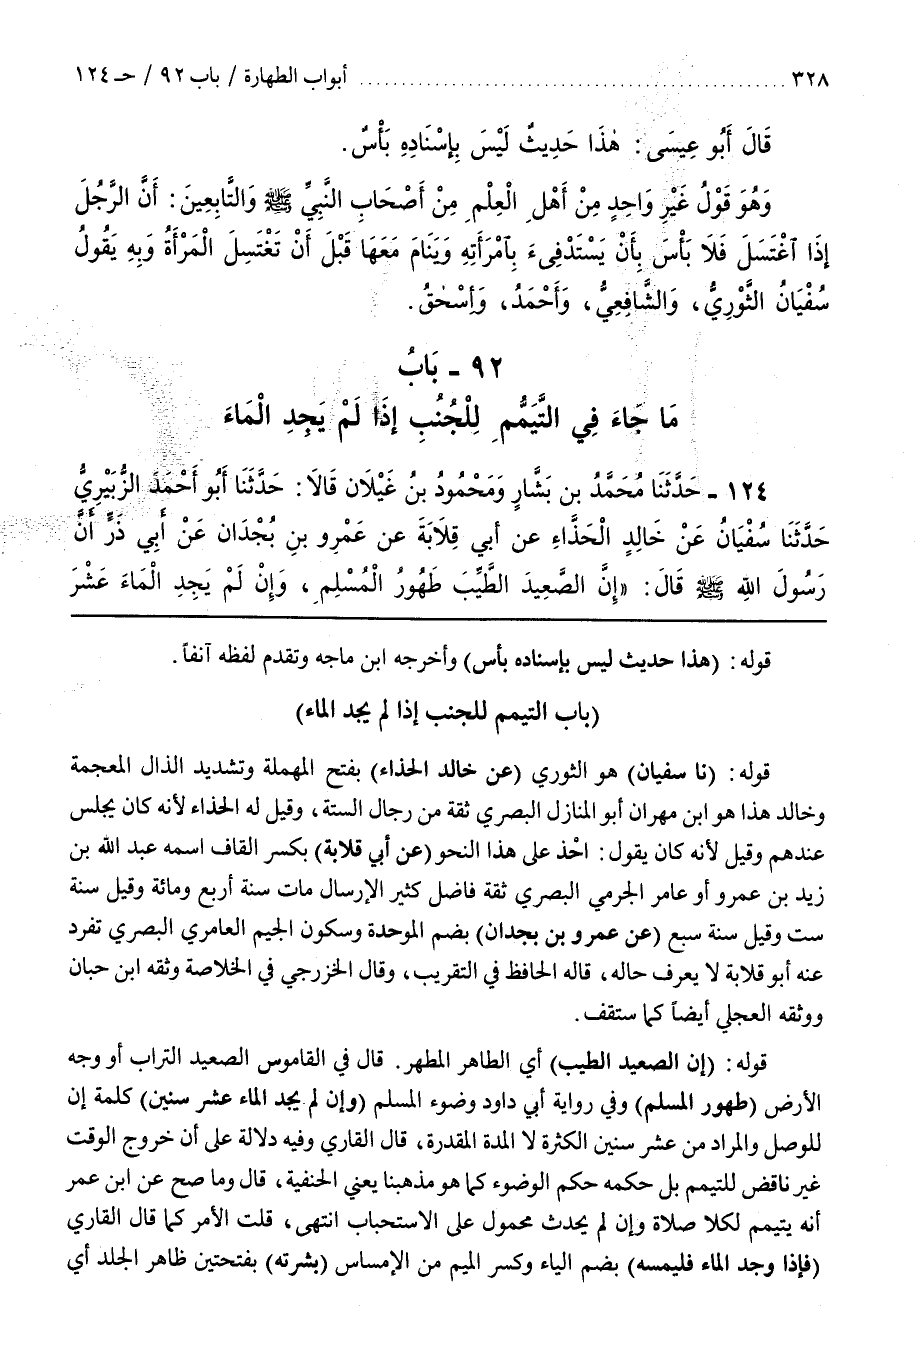 ٣٢٨ ........................................ أبواب الطهارة / باب ٩٢ / حـ ١٢٤
قَالَ أَبُو عِيسَى: هٰذَا حَدِيثٌ لَيْسَ بِإِسْنَادِهِ بَأْسٌ.
وَهُوَ قَوْلُ غَيْرِ وَاحِدٍ مِنْ أَهْلِ الْعِلْمِ مِنْ أَصْحَابِ النَّبِيِّ ﷺ وَالتَّابِعِينَ: أَنَّ الرَّجُلَ
إِذَا ٱغْتَسَلَ فَلَا بَأْسَ بِأَنْ يَسْتَدْفِىءَ بِٱمْرَأَتِهِ وَيَنَامَ مَعَهَا قَبْلَ أَنْ تَغْتَسِلَ الْمَرْأَةُ وَبِهِ يَقُولُ
سُفْيَانُ الثَّوْرِيُّ، وَالشَّافِعِيُّ، وَأَحْمَدُ، وَإِسْحٰقُ.
٩٢ ـ بَابُ
مَا جَاءَ فِي التَّيَمُّمِ لِلْجُنُبِ إِذَا لَمْ يَجِدِ الْمَاءَ
١٢٤ ـ حَدَّثَنَا مُحَمَّدُ بن بَشَّارٍ وَمَحْمُودُ بنُ غَيْلَان قَالَا: حَدَّثَنَا أَبُو أَحْمَدَ الزُّبَيْرِيُّ
حَدَّثَنَا سُفْيَانُ عَنْ خَالِدٍ الْحَذَّاءِ عن أَبي قِلَابَةَ عن عَمْرِو بنِ بُجْدَان عَنْ أَبِي ذَرٍّ أَنَّ
رَسُولَ اللهِ ﷺ قَالَ: «إِنَّ الصَّعِيدَ الطَّيِّبَ طَهُورُ الْمُسْلِمِ، وَإِنْ لَمْ يَجِدِ الْمَاءَ عَشْرَ
قوله: (هذا حديث ليس بإسناده بأس) وأخرجه ابن ماجه وتقدم لفظه آنفاً.
(باب التيمم للجنب إذا لم يجد الماء)
قوله: (نا سفيان) هو الثوري (عن خالد الحذاء) بفتح المهملة وتشديد الذال المعجمة
وخالد هذا هو ابن مهران أبو المنازل البصري ثقة من رجال الستة، وقيل له الحذاء لأنه كان يجلس
عندهم وقيل لأنه كان يقول: احْذ على هذا النحو (عن أبي قلابة) بكسر القاف اسمه عبد الله بن
زيد بن عمرو أو عامر الجرمي البصري ثقة فاضل كثير الإرسال مات سنة أربع ومائة وقيل سنة
ست وقيل سنة سبع (عن عمرو بن بجدان) بضم الموحدة وسكون الجيم العامري البصري تفرد
عنه أبو قلابة لا يعرف حاله، قاله الحافظ في التقريب، وقال الخزرجي في الخلاصة وثقه ابن حبان
ووثقه العجلي أيضاً كما ستقف.
قوله: (إن الصعيد الطيب) أي الطاهر المطهر. قال في القاموس الصعيد التراب أو وجه
الأرض (طهور المسلم) وفي رواية أبي داود وضوء المسلم (وإن لم يجد الماء عشر سنين) كلمة إن
للوصل والمراد من عشر سنين الكثرة لا المدة المقدرة، قال القاري وفيه دلالة على أن خروج الوقت
غير ناقض للتيمم بل حكمه حكم الوضوء كما هو مذهبنا يعني الحنفية، قال وما صح عن ابن عمر
أنه يتيمم لكلا صلاة وإن لم يحدث محمول على الاستحباب انتهى، قلت الأمر كما قال القاري
(فإذا وجد الماء فليمسه) بضم الياء وكسر الميم من الإمساس (بشرته) بفتحتين ظاهر الجلد أي